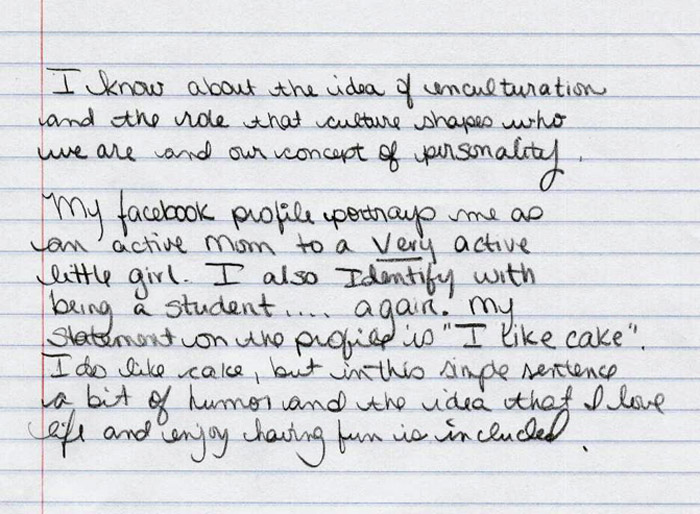 I know about the idea of enculturation
and the role that culture shapes who
we are and our concept of personality.
My facebook profile portrays me as
an active mom to a Very active
little girl. I also Identify with
being a student.... again. My
statement on the profile is "I like cake".
I do like cake, but in this simple sentence
a bit of humor and the idea that I love
life and enjoy having fun is included.